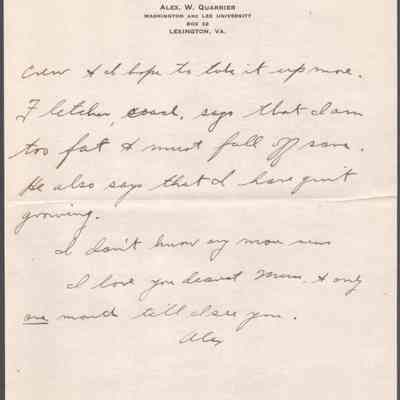 ALEX. W. QUARRIER
WASHINGTON AND LEE UNIVERSITY
BOX 32
LEXINGTON, VA.
Crew & I hope to take it up more.
Fletcher, coach, says that I am
too fat & must fall off some.
He also says that I have quit
growing.
I don't know any more news
I love you dearest Mum, & only
one month till I see you.
Alex